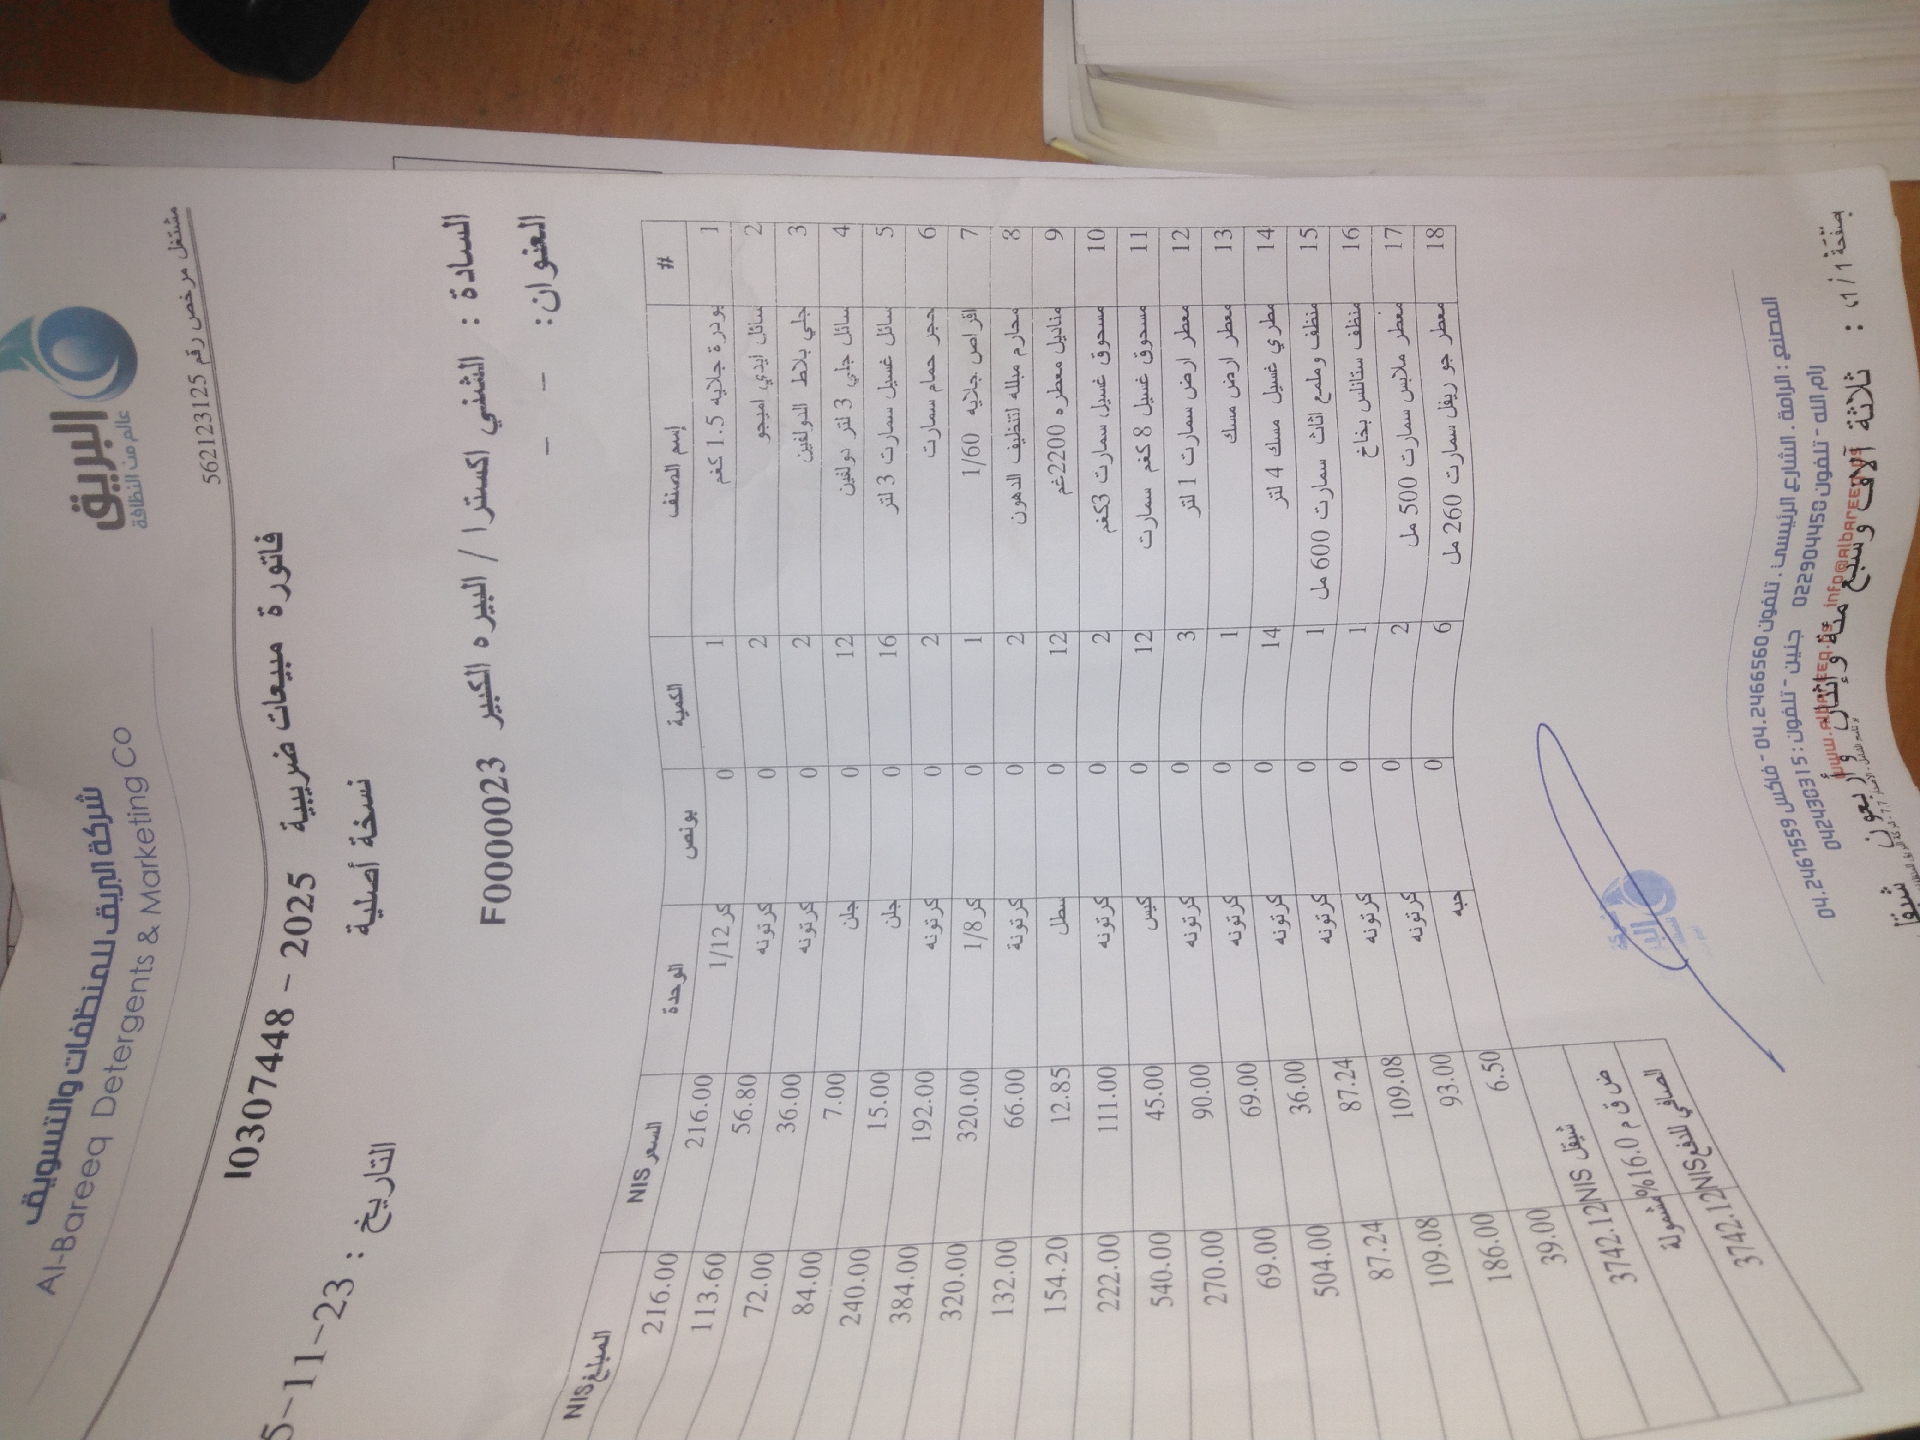 شركة البريق للمنظفات والتسويق
Al-Bareeq Detergents & Marketing Co
البريق
عالم من النظافة
مشتغل مرخص رقم 562123125
فاتورة مبيعات ضريبية 2025 - I0307448
نسخة أصلية
التاريخ : 23-11-5
السادة : الشني اكسترا / البيره الكبير F0000023
العنوان: - -
# إسم الصنف الكمية بونص الوحدة السعر NIS المبلغ NIS
1 بودرة جلايه 1.5 كغم 1 0 كر 1/12 216.00 216.00
2 سائل ايدي اميجو 2 0 كرتونه 56.80 113.60
3 جلي بلاط الدولفين 2 0 كرتونه 36.00 72.00
4 سائل جلي 3 لتر دولفين 12 0 جلن 7.00 84.00
5 سائل غسيل سمارت 3 لتر 16 0 جلن 15.00 240.00
6 حجر حمام سمارت 2 0 كرتونه 192.00 384.00
7 اقراص جلايه 1/60 1 0 كر 1/8 320.00 320.00
8 محارم مبلله لتنظيف الدهون 2 0 كرتونة 66.00 132.00
9 مناديل معطره 2200غم 12 0 سطل 12.85 154.20
10 مسحوق غسيل سمارت 3كغم 2 0 كرتونه 111.00 222.00
11 مسحوق غسيل 8 كغم سمارت 12 0 كيس 45.00 540.00
12 معطر ارض سمارت 1 لتر 3 0 كرتونه 90.00 270.00
13 معطر ارض مسك 1 0 كرتونه 69.00 69.00
14 مطري غسيل مسك 4 لتر 14 0 كرتونه 36.00 504.00
15 منظف وملمع اثاث سمارت 600 مل 1 0 كرتونه 87.24 87.24
16 منظف ستانلس بخاخ 1 0 كرتونه 109.08 109.08
17 معطر ملابس سمارت 500 مل 2 0 كرتونه 93.00 186.00
18 معطر جو ريفل سمارت 260 مل 6 0 حبه 6.50 39.00
شيقل NIS 3742.12
ض ق م 16.0% مشمولة
الصافي للدفع NIS 3742.12
المصنع : الرامة . الشارع الرئيسي . تلفون 04.2466560 - فاكس 04.2467559
رام الله - تلفون 022904450 جنين - تلفون : 042430315
www.Albareeq.ps info@Albareeq.ps
ثلاثة آلاف وسبع مئة وإثنان وأربعون شيقل
صفحة 1 / 1